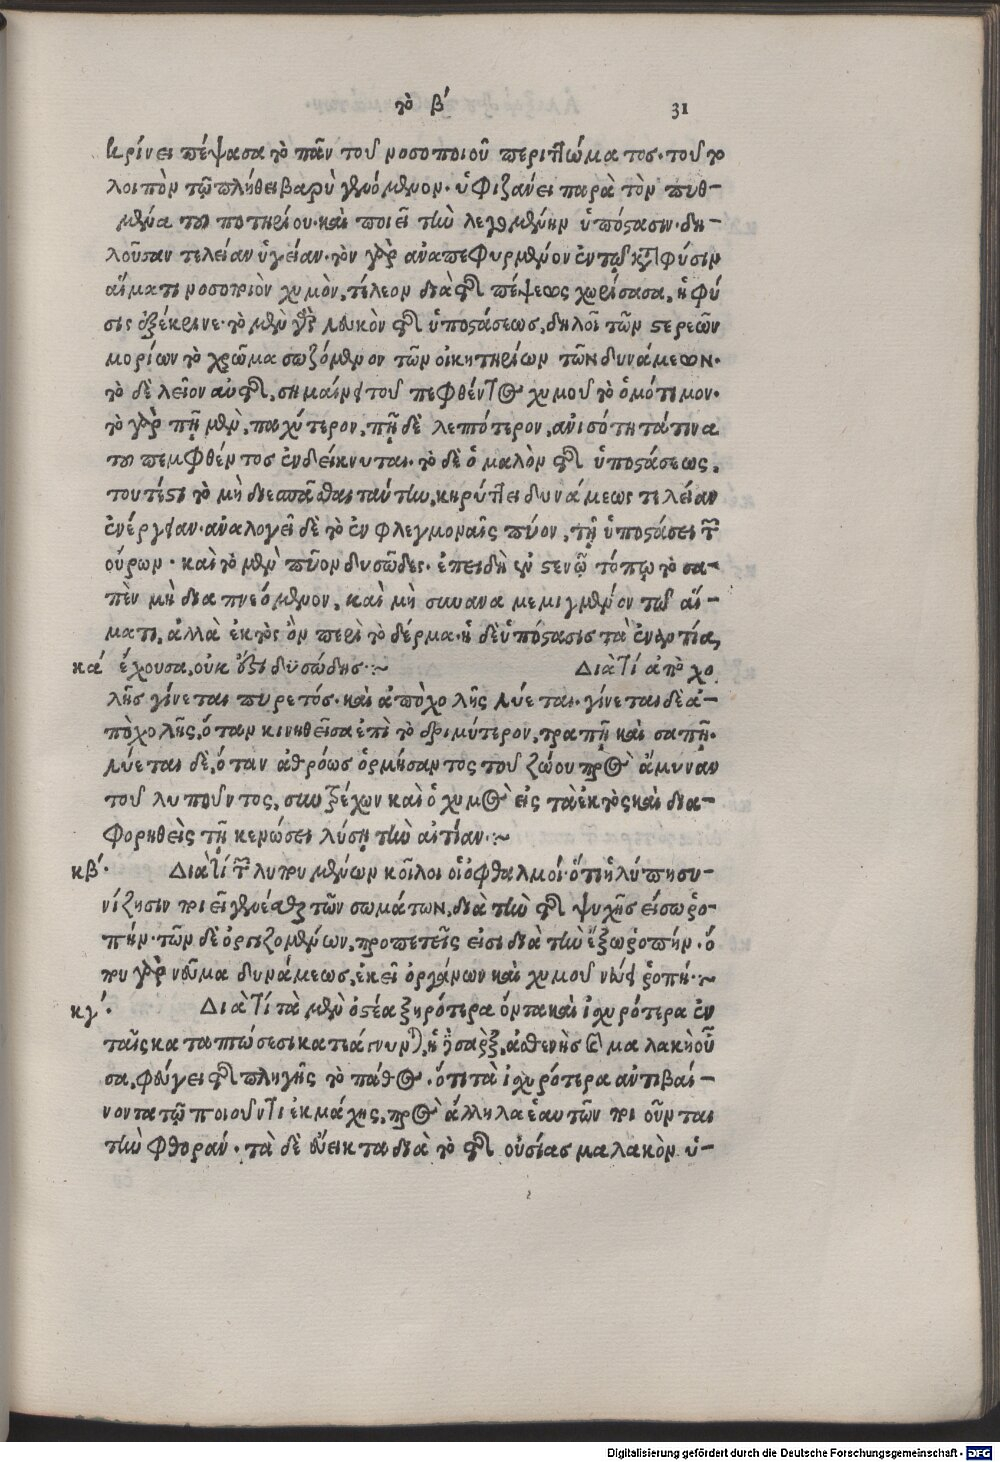 τὸ β´ 31
κρίνει πέψασα τὸ πᾶν τοῦ νοσοποιοῦ περιττώματος. τοῦτο
λοιπὸν τῷ πλήθει βαρὺ γενόμενον. ὑφιζάνει παρὰ τὸν πυθ-
μένα τοῦ ποτηρίου. καὶ ποιεῖ τὴν λεγομένην ὑπόστασιν. δη-
λοῦσαν τελείαν ὑγείαν. τὸν γὰρ ἀναπεφυρμένον ἐν τῷ κατὰ φύσιν
αἵματι νοσοποιὸν χυμὸν, τέλεον διὰ τῆς πέψεως χωρίσασα, ἡ φύ
σις ἐξέκρινε. τὸ μὲν γὰρ λευκὸν τῆς ὑποστάσεως, δηλοῖ τῶν στερεῶν
μορίων τὸ χρῶμα σωζόμενον τῶν οἰκητηρίων τῶν δυνάμεων.
τὸ δὲ λεῖον αὐτῆς, σημαίνει τοῦ πεφθέντος χυμοῦ τὸ ὁμότιμον.
τὸ γὰρ πῇ μὲν, παχύτερον, πῇ δὲ λεπτότερον, ἀνισότητά τινα
τοῦ πεμφθέντος ἐνδείκνυται. τὸ δὲ ὁμαλὸν τῆς ὑποστάσεως,
τουτέστι τὸ μὴ διεσπᾶσθαι ταύτην, κηρύττει δυνάμεως τελείαν
ἐνέργειαν. ἀναλογεῖ δὲ τὸ ἐν φλεγμοναῖς πύον, τῇ ὑποστάσει τῶν
οὔρων. καὶ τὸ μὲν πῦον δυσῶδες. ἐπειδὴ ἐν στενῷ τόπῳ τὸ σα-
πὲν μὴ διαπνεόμενον, καὶ μὴ συναναμεμιγμένον τῷ αἵ-
ματι, ἀλλὰ ἐκτὸς ὂν περὶ τὸ δέρμα. ἡ δὲ ὑπόστασις τὰ ἐναντία,
κα´ ἔχουσα, οὐκ ἔστι δυσώδης :~ Διατί ἀπὸ χο
λῆς γίνεται πυρετός. καὶ ἀπὸ χολῆς λύεται. γίνεται δὲ ἀ-
πὸ χολῆς, ὅταν κινηθεῖσα ἐπὶ τὸ δριμύτερον, τραπῇ καὶ σαπῇ.
λύεται δὲ, ὅταν ἀθρόως ὁρμήσαντος τοῦ ζώου πρὸς ἄμυναν
τοῦ λυποῦντος, συντρέχων καὶ ὁ χυμὸς εἰς τὰ ἐκτὸς καὶ δια-
φορηθεὶς τῇ κενώσει λύσῃ τὴν αἰτίαν :~
κβ´. Διατί τῶν λυπουμένων κοῖλοι οἱ ὀφθαλμοί. ὅτι ἡ λύπη συ-
νίζησιν ποιεῖ γενέσθαι τῶν σωμάτων, διὰ τὴν τῆς ψυχῆς εἴσω ῥο-
πήν. τῶν δὲ ὀργιζομένων, προπετεῖς εἰσι διὰ τὴν ἔξω ῥοπήν. ὅ
που γὰρ νεῦμα δυνάμεως, ἐκεῖ ὀργάνων καὶ χυμοῦ νεύει ῥοπή :~
κγ´. Διατί τὰ μὲν ὀστέα ξηρότερα ὄντα καὶ ἰσχυρότερα ἐν
ταῖς καταπτώσεσι κατεάγνυνται, ἡ δὲ σὰρξ, ἀσθενὴς καὶ μαλακὴ οὖ
σα, φεύγει τῆς πληγῆς τὸ πάθος. ὅτι τὰ ἰσχυρότερα ἀντιβαί-
νοντα τῷ ποιοῦντι ἐκ μάχης, πρὸς ἄλληλα ἑαυτῶν ποιοῦνται
τὴν φθοράν. τὰ δὲ εὔεικτα διὰ τὸ τῆς οὐσίας μαλακὸν ὑ-
Digitalisierung gefördert durch die Deutsche Forschungsgemeinschaft - DFG